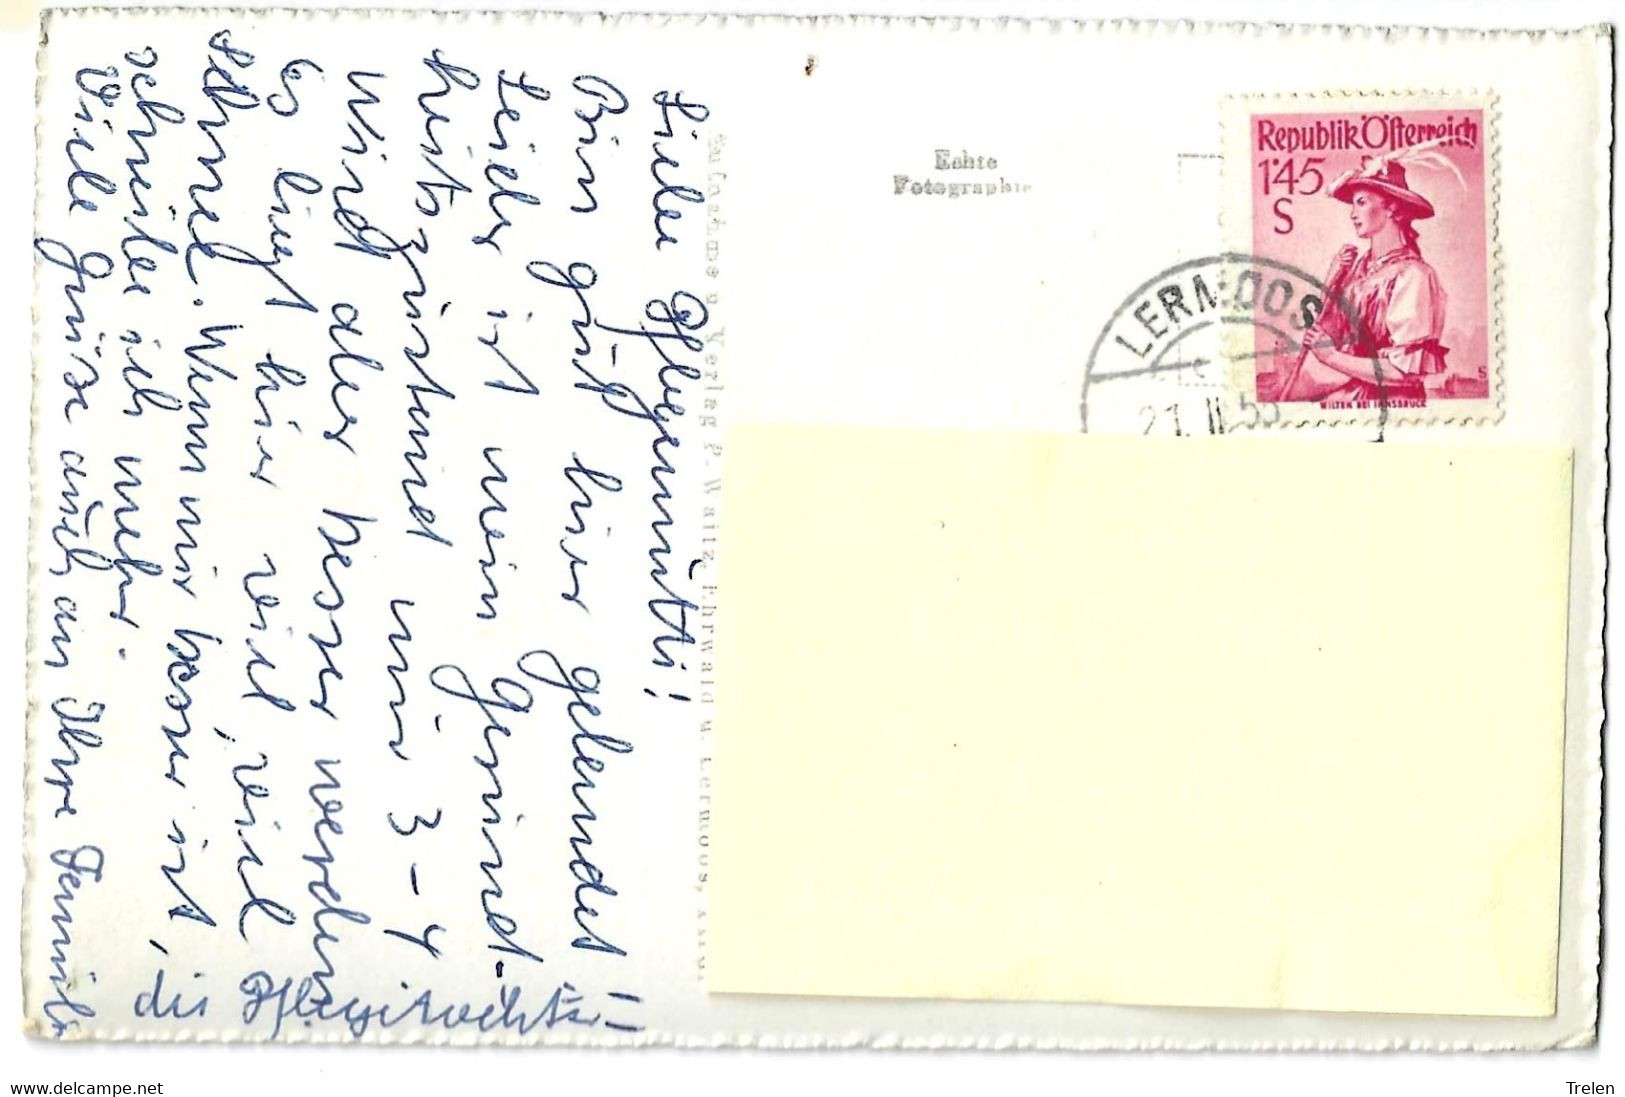 Liebe Pflegemutti!
Bin gut hier gelandet!
Leider ist mein Gesund-
heitszustand nur 3-4
Wird aber besser werden
Es liegt hier viel, viel
Schnee. Wenn mir besser ist,
schreibe ich mehr.
Viele Grüße auch an Ihre Famili
die Pflegetochter
Echte
Fotographie
Verlag P. Waitz, Ehrwald u. Lermoos,
Republik Österreich
1'45
S
WILTEN BEI INNSBRUCK
LERMOOS
21. II 55
www.delcampe.net
Trelen